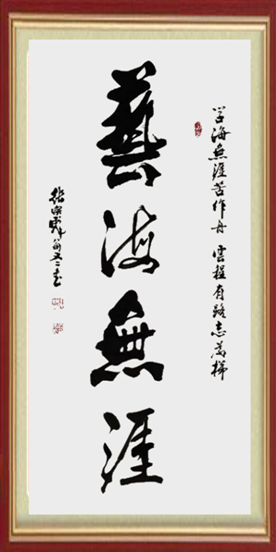 学海無涯苦作舟 雲程有路志為梯
藝海無涯